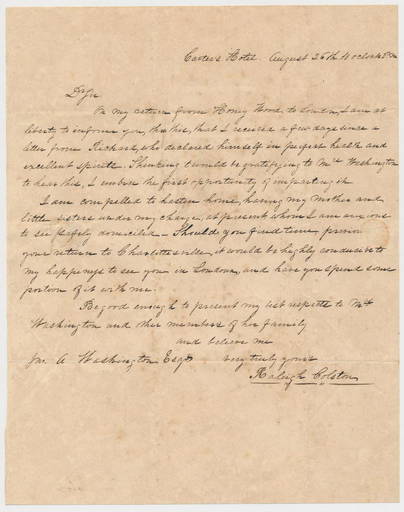 Carter's Hotel August 26th 4 oclock P.M
Dr Sir
On my return from Honey Wood, to Loudon, I am at
liberty to inform you, that I received a few days since a
letter from Richard, who declared himself in perfect health and
excellent spirits. Thinking t'would be gratifying to Mrs Washington
to hear this, I embrace the first opportunity of imparting it.
I am compelled to hasten home, having my mother and
little sisters under my charge, at present whom I am anxious
to see safely domiciled – Should you find time, previous
your return to Charlottesville, it would be highly conducive to
my happiness to see you in Loudoun, and have you spend some
portion of it with me.
Be good enough to present my best respects to Mrs
Washington and other members of her family
and believe me
Jno. A Washington Esqr very truly yours
Raleigh Colston